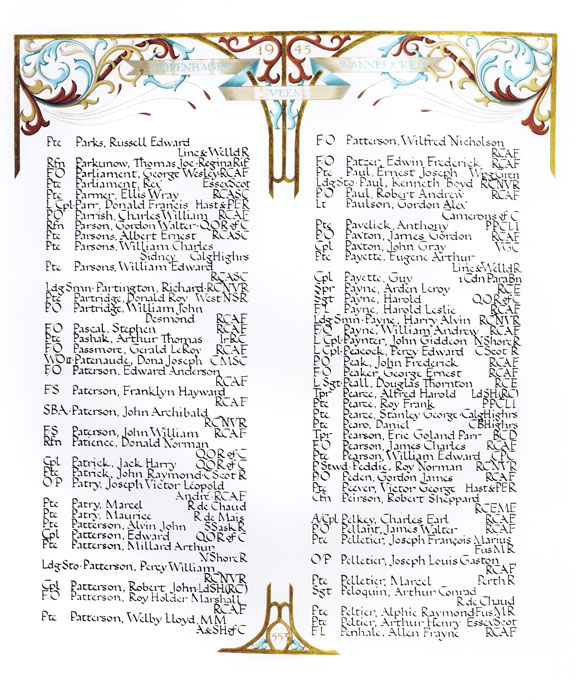 19 45
COPENHAGEN
WANNEPERVEEN
VEEN
Pte Parks, Russell Edward
Linc & Welld R
Rfn Parkunow, Thomas Joe · Regina Rif
FO Parliament, George Wesley RCAF
Pte Parliament, Rex Essex Scot
Pte Parmer, Ellis Wray RCASC
L Cpl Parr, Donald Francis Hast & PER
PO Parrish, Charles William RCAF
Rfn Parson, Gordon Walter · QOR of C
Pte Parsons, Albert Ernest RCASC
Pte Parsons, William Charles
Sidney Calg Highrs
Pte Parsons, William Edward
RCASC
Ldg Smn · Partington, Richard · RCNVR
Pte Partridge, Donald Roy West NSR
PO Partridge, William John
Desmond RCAF
FO Pascal, Stephen RCAF
Pte Pashak, Arthur Thomas Ir RC
FO Passmore, Gerald LeRoy RCAF
WO II · Patenaude, Dona Joseph CMSC
FO Paterson, Edward Anderson
RCAF
FS Paterson, Franklyn Hayward
RCAF
SBA · Paterson, John Archibald
RCNVR
FS Paterson, John William RCAF
Rfn Patience, Donald Norman
QOR of C
Cpl Patrick, Jack Harry QOR of C
Pte Patrick, John Raymond C Scot R
OP Patry, Joseph Victor Léopold
André · RCAF
Pte Patry, Marcel R de Chaud
Pte Patry, Maurice R de Mais
Pte Patterson, Alvin John S Sask R
Cpl Patterson, Edward QOR of C
Pte Patterson, Millard Arthur
N Shore R
Ldg Sto · Patterson, Percy William
RCNVR
Cpl Patterson, Robert John · LdSH(RC)
FO Patterson, Roy Holder Marshall
RCAF
Pte Patterson, Welby Lloyd, MM
A & SH of C
FO Patterson, Wilfred Nicholson
RCAF
FO Patzer, Edwin Frederick RCAF
Pte Paul, Ernest Joseph Wpg Gren
Ldg Sto · Paul, Kenneth Boyd RCNVR
PO Paul, Robert Andrew RCAF
Lt Paulson, Gordon Alex
Camerons of C
Pte Pavelick, Anthony PPCLI
PO Paxton, James Gordon RCAF
Cpl Paxton, John Gray VGC
Pte Payette, Eugene Arthur
Linc & Welld R
Cpl Payette, Guy 1 Cdn Para Bn
Spr Payne, Arden Leroy RCE
Sgt Payne, Harold QOR of C
FL Payne, Harold Leslie RCAF
Ldg Smn · Payne, Harry Alvin RCNVR
FO Payne, William Andrew RCAF
L Cpl · Paynter, John Giddeon N Shore R
L Cpl · Peacock, Percy Edward C Scot R
PO Peak, John Frederick RCAF
FO Peaker, George Ernest RCAF
L Sgt · Peall, Douglas Thornton RCE
Tpr Pearce, Alfred Harold LdSH(RC)
Pte Pearce, Roy Frank PPCLI
Pte Pearce, Stanley George · Calg Highrs
Pte Pearo, Daniel CB Highrs
Tpr Pearson, Eric Goland Parr BCD
FO Pearson, James Charles RCAF
Pte Pearson, William Edward CPC
P Stwd · Peddie, Roy Norman RCNVR
PO Peden, Gordon James RCAF
Pte Peever, Victor George Hast & PER
Cfn Peirson, Robert Sheppard
RCEME
A/Cpl Pelkey, Charles Earl RCAF
PO Pellant, James Walter RCAF
Pte Pelletier, Joseph François Marius
Fus MR
OP Pelletier, Joseph Louis Gaston
RCAF
Pte Pelletier, Marcel Perth R
Sgt Peloquin, Arthur Conrad
R de Chaud
Pte Peltier, Alphie Raymond Fus MR
Pte Peltier, Arthur Henry Essex Scot
FL Penhale, Allen Frayne RCAF
553